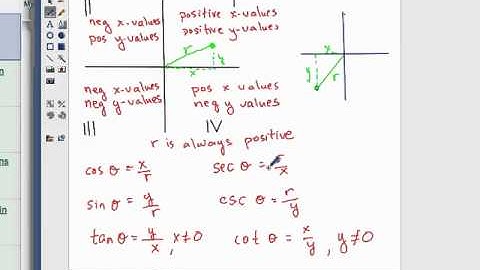 II
neg x-values
pos y-values
positive x-values
positive y-values
r
y
x
x
y
r
neg x-values
neg y-values
pos x values
neg y values
III
IV
r is always positive
cos θ = x/r
sec θ = r/x
sin θ = y/r
csc θ = r/y
tan θ = y/x, x≠0
cot θ = x/y, y≠0